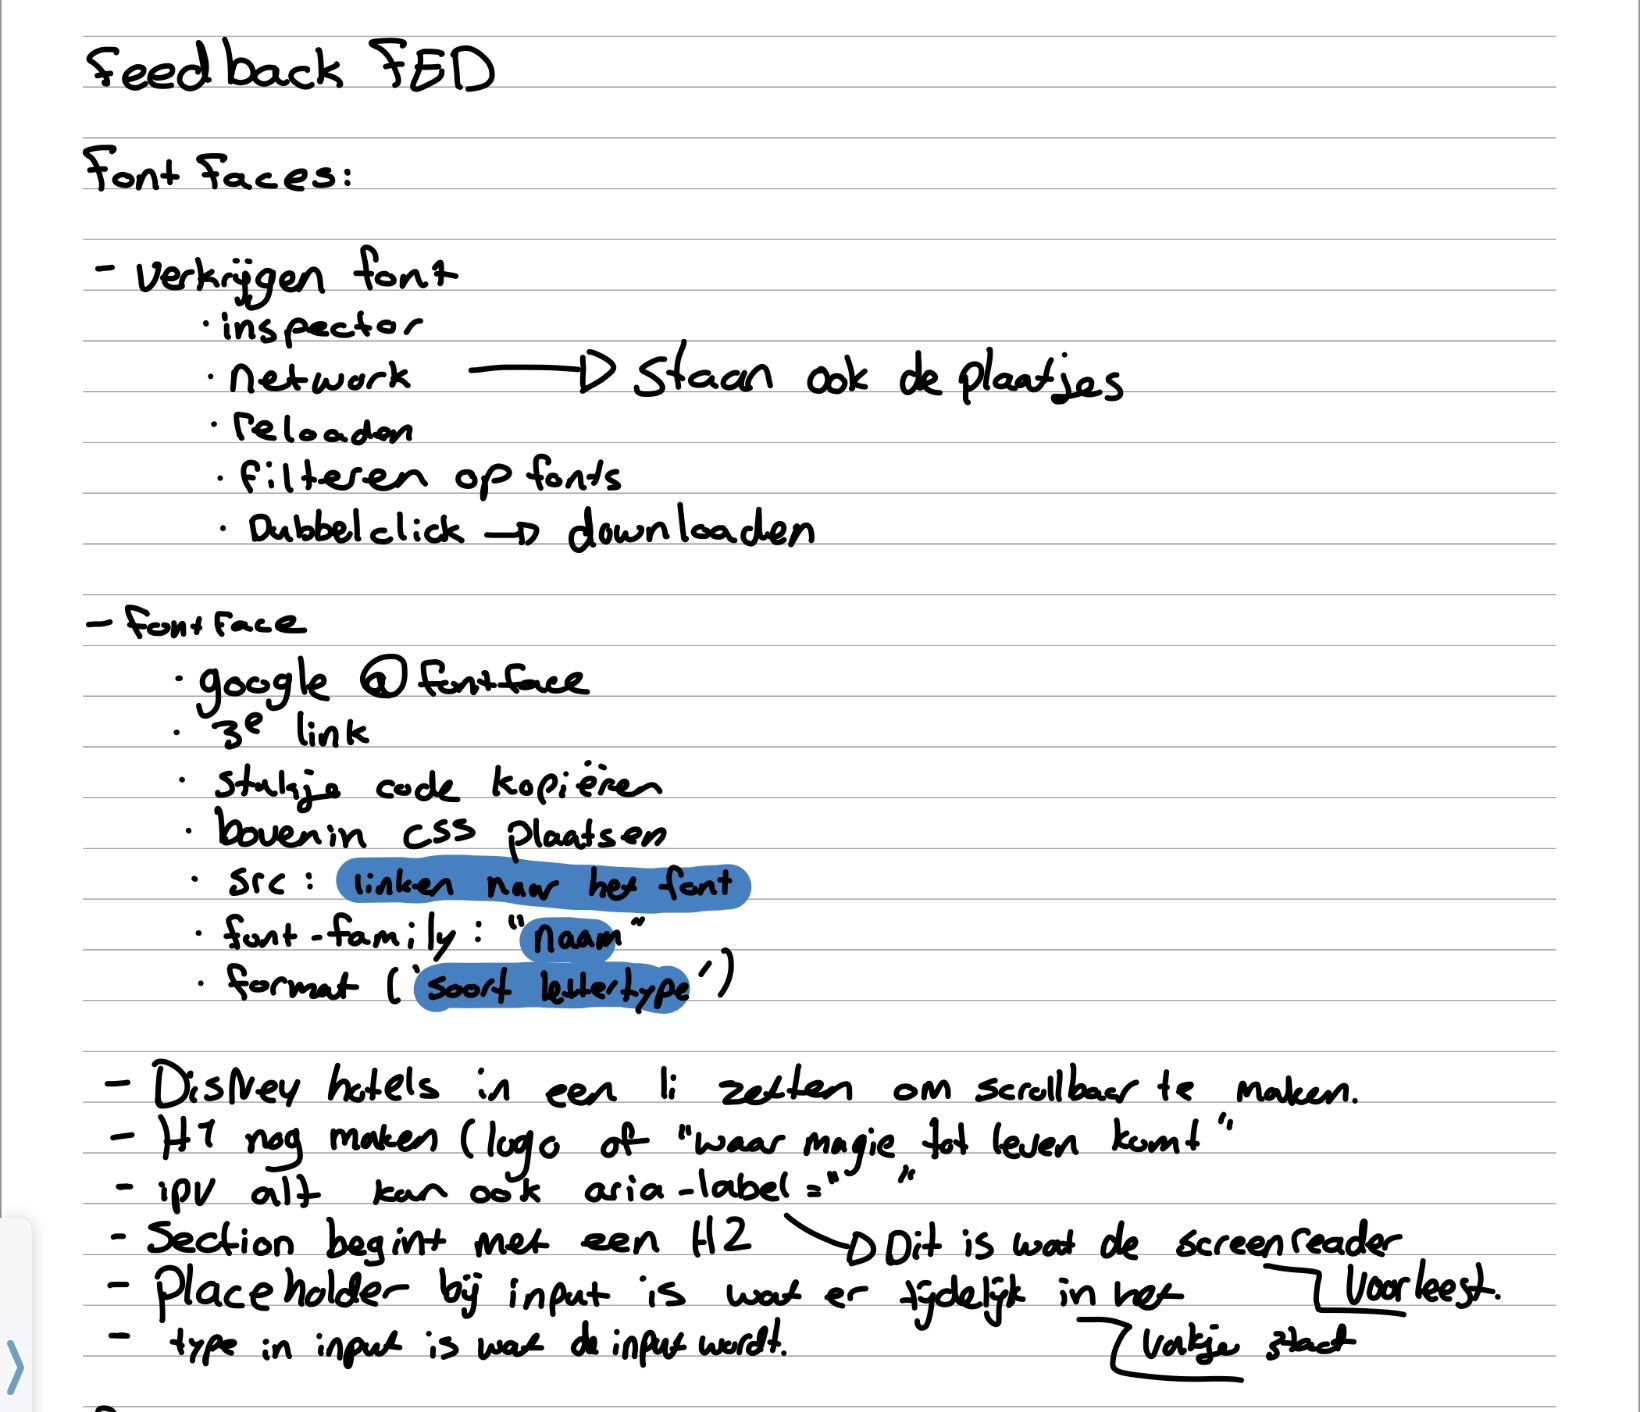 Feedback FED
Font faces:
- verkrijgen font
· inspector
· network → staan ook de plaatjes
· reloaden
· filteren op fonts
· Dubbelclick → downloaden
- fontface
· google @fontface
· 3e link
· stukje code kopiëren
· bovenin css plaatsen
· src: linken naar het font
· font-family: "naam"
· format ('soort lettertype')
- Disney hotels in een li zetten om scrollbaar te maken.
- H1 nog maken (logo of "waar magie tot leven komt"
- ipv alt kan ook aria-label=" "
- Section begint met een H2 → Dit is wat de screenreader
voorleest.
- Placeholder bij input is wat er tijdelijk in het
vakje staat
- type in input is wat de input wordt.